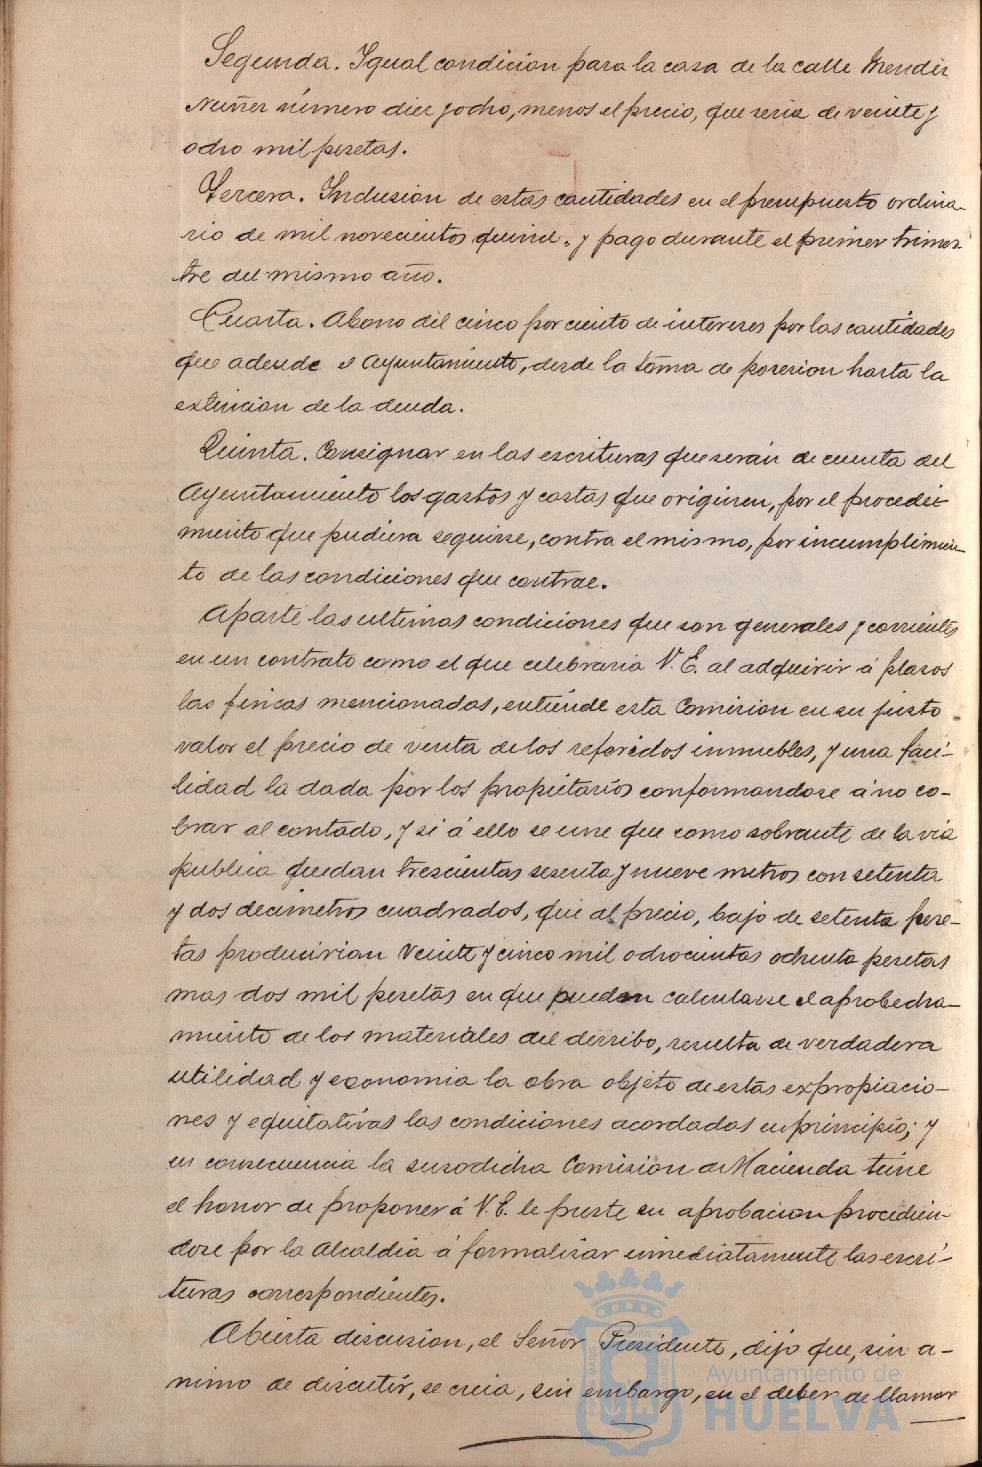 Segunda. Igual condicion para la casa de la calle Mendez
Nuñez número diez y ocho, menos el precio, que seria de veinte y
ocho mil pesetas.
Tercera. Inclusion de estas cantidades en el presupuesto ordina-
rio de mil novecientos quince, y pago durante el primer trimes-
tre del mismo año.
Cuarta. Abono del cinco por ciento de intereses por las cantidades
que adeude el Ayuntamiento, desde la toma de posesion hasta la
extincion de la deuda.
Quinta. Consignar en las escrituras que serán de cuenta del
Ayuntamiento los gastos y costas que originen, por el procedi-
miento que pudiera seguirse, contra el mismo, por incumplimien-
to de las condiciones que contrae.
Aparte las ultimas condiciones que son generales y corrientes
en un contrato como el que celebraria V. E. al adquirir á plazos
las fincas mencionadas, entiende esta Comision en su justo
valor el precio de venta de los referidos inmuebles, y una faci-
lidad la dada por los propietarios conformandose á no co-
brar al contado, y si á ello se une que como sobrante de la via
publica quedan trescientas sesenta y nueve metros con setenta
y dos decimetros cuadrados, que al precio, bajo de setenta pese-
tas producirian veinte y cinco mil ochocientas ochenta pesetas
mas dos mil pesetas en que pueden calcularse el aprobecha-
miento de los materiales del derribo, resulta de verdadera
utilidad y economia la obra objeto de estas expropiacio-
nes y equitativas las condiciones acordadas en principio; y
en consecuencia la susodicha Comision de Hacienda tiene
el honor de proponer á V. E. le preste su aprobacion procedien-
dose por la Alcaldia á formalizar inmediatamente las escri-
turas correspondientes.
Abierta discusion, el Señor Presidente, dijo que, sin a-
nimo de discutir, se creia, sin embargo, en el deber de llamar
Ayuntamiento de
HUELVA